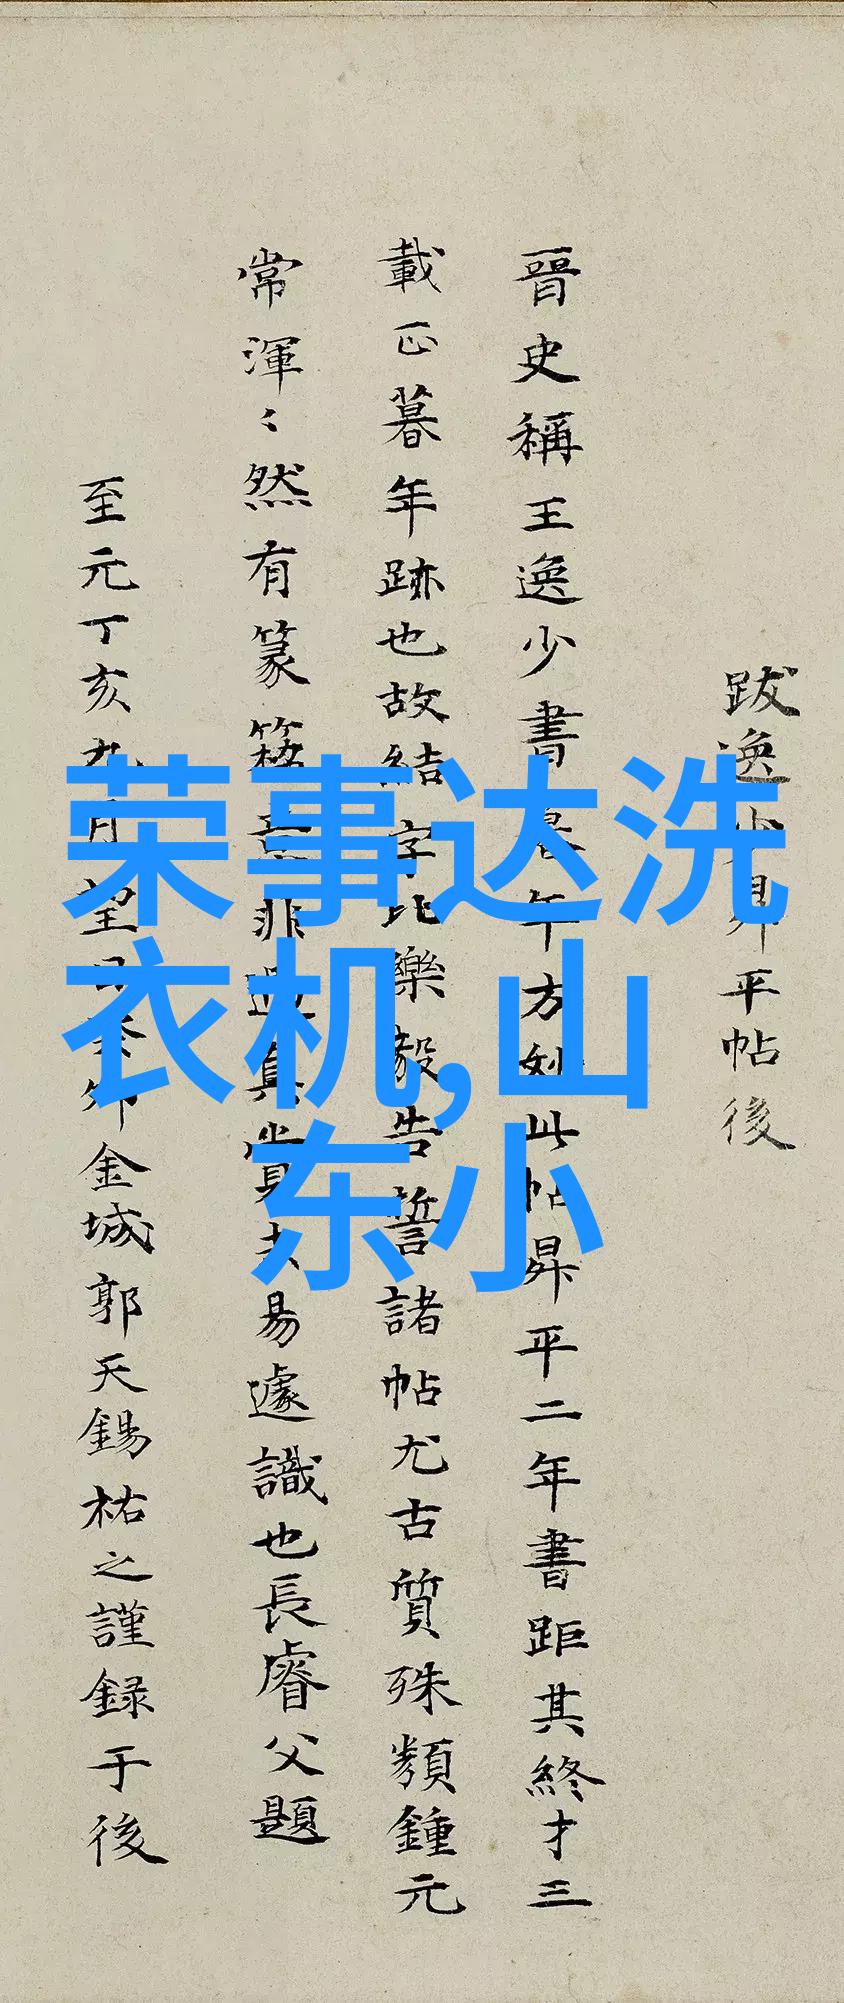 跋逸少昇平帖後
晉史稱王逸少書暮年方妙此帖昇平二年書距其終才三
載正暮年跡也故結字比樂毅告誓諸帖尤古質殊類鍾元
常渾〻然有篆籀意非過真賞未易遽識也長睿父題
至元丁亥九月望日 金城郭天錫祐之謹録于後
荣事达洗
衣机,山
东小